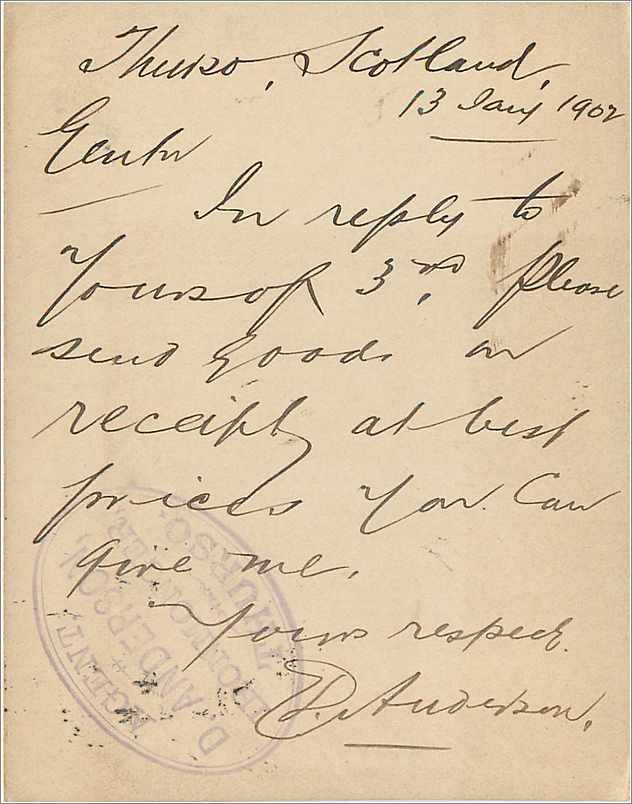 Thurso, Scotland,
13 Jany 1902
Gentn
In reply to
Yours of 3rd, please
send goods on
receipt, at best
prices you can
give me.
Yours respect.
D. Anderson.
AGENT,
D. ANDERSON,
IRONMONGER,
THURSO.